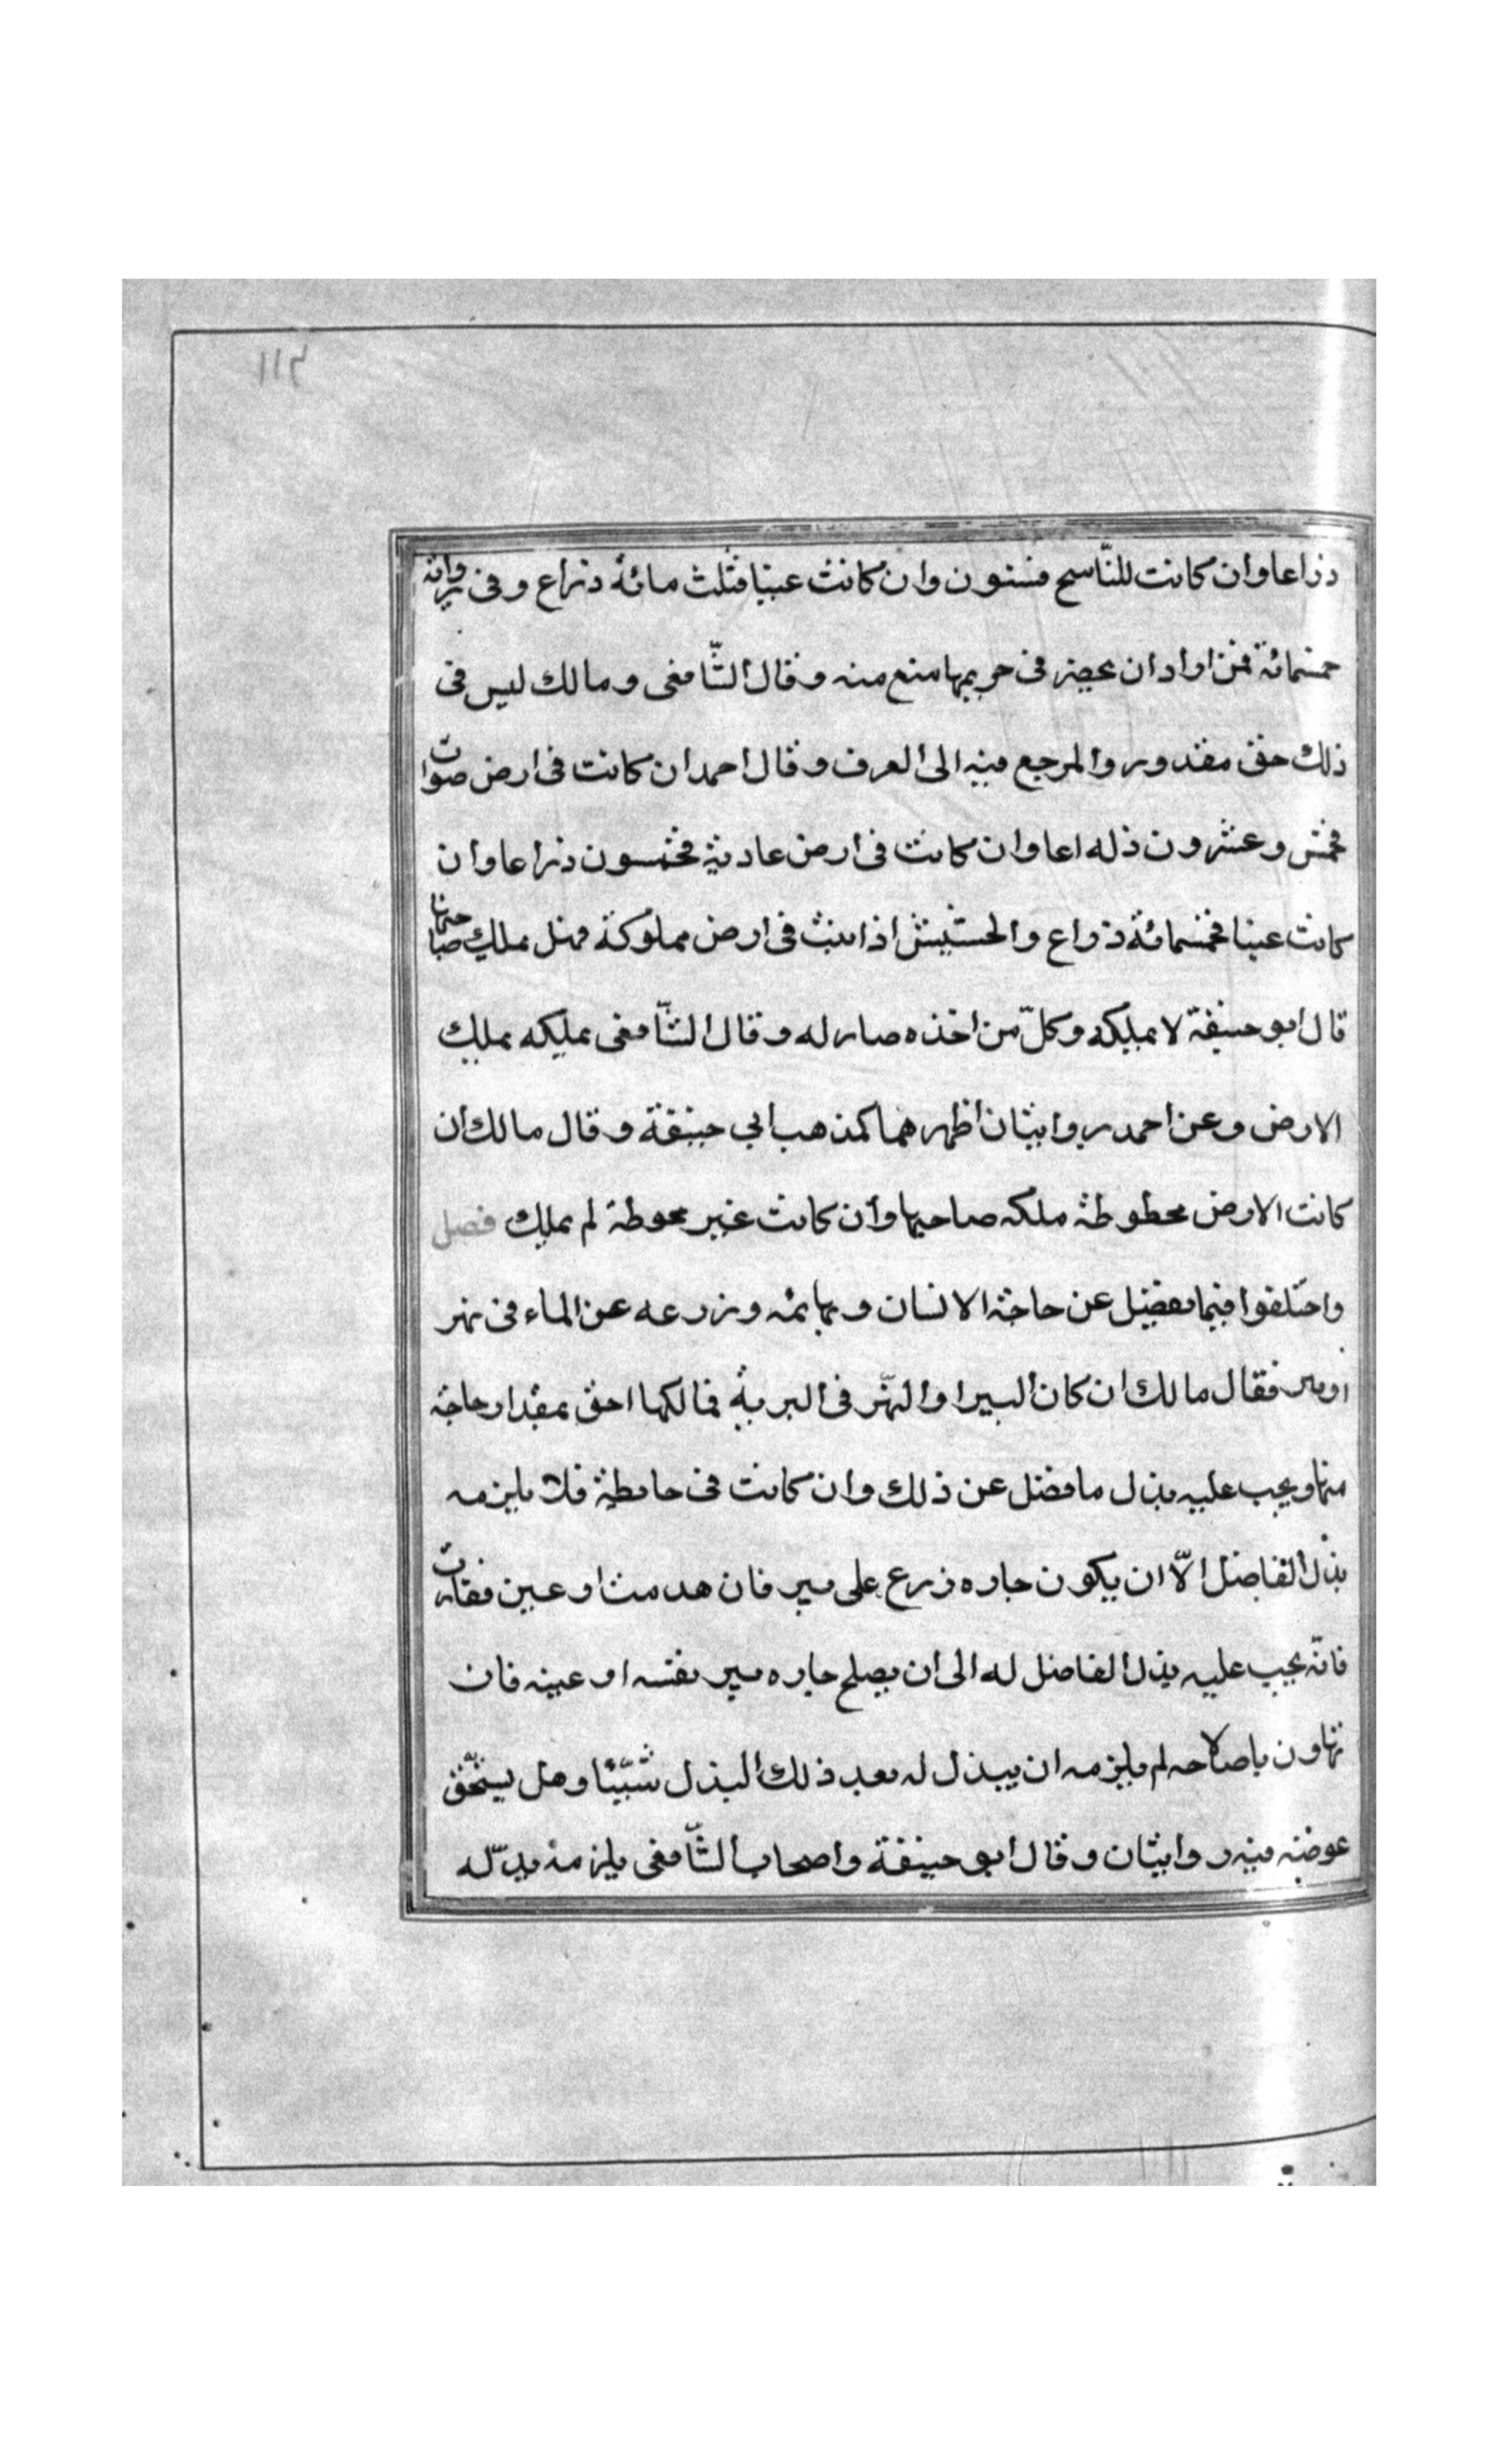 ٢١١
ذراعا وان كانت للنّاسح فستون وان كانت عينا فثلث مائة ذراع وفى رواية
خمسمائة فمن اراد ان يحضر فى حريمها منع منه وقال الشّافعى ومالك ليس فى
ذلك حق مقدور والمرجع فيه الى العرف وقال احمد ان كانت فى ارض صوات
فخمس وعشرون ذله اعا وان كانت فى ارض عادية فخمسون ذراعا وان
كانت عينا فخمسمائة ذراع والحشيش اذا نبت فى ارض مملوكة فهل يملك صاحبها
قال ابو حنيفة لا يملكه وكلّ من اخذه صار له وقال الشّافعى يملكه بملك
الارض وعن احمد روايتان اظهرهما كمذهب ابي حنيفة وقال مالك ان
كانت الارض محطوطة ملكه صاحبها وان كانت غير محوطة لم يملك فصل
واختلفوا فيما يفضل عن حاجة الانسان وبهائمه وزرعه عن الماء فى نهر
او بير فقال مالك ان كان البير او النّهر فى البرية فمالكها احق بمقدار حاجة
منها ويجب عليه بذل ما فضل عن ذلك وان كانت فى حايطة فلا يلزمه
بذل الفاضل الّا ان يكون جاره زرع على بير فان هدمت او عين فغارت
فانّه يجب عليه بذل الفاضل له الى ان يصلح جاره بير نفسه او عينه فان
تهاون باصلاحه لم يلزمه ان يبذل له بعد ذلك البذل شيّئا وهل يستحّق
عوضه فيه روايتان وقال ابو حنيفة واصحاب الشّافعى يلزمه بذلّه